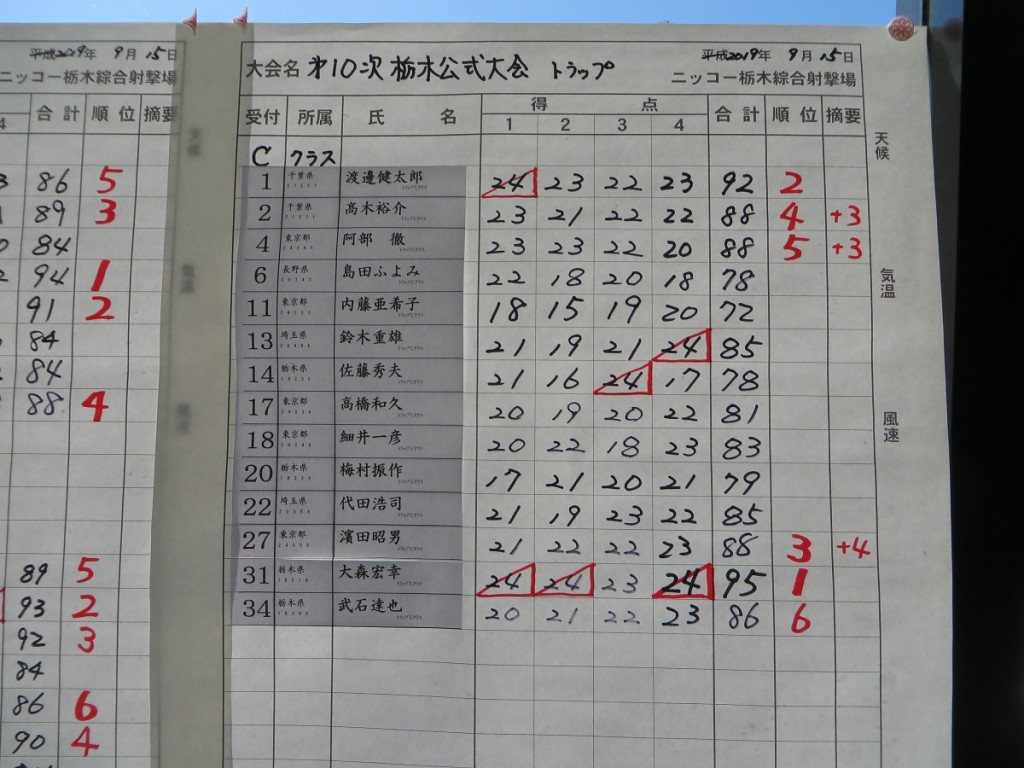 平成2019年 9月 15日
ニッコー栃木綜合射撃場
合計 順位 摘要
86 5
89 3
84
94 1
91 2
84
84
88 4
89 5
93 2
92 3
84
86 6
90 4
平成2019年 9月 15日
大会名 第10次 栃木公式大会 トラップ
ニッコー栃木綜合射撃場
受付 所属 氏名 得点 合計 順位 摘要
1 2 3 4
C クラス
1 千葉県 渡邊健太郎 24 23 22 23 92 2
2 千葉県 髙木裕介 23 21 22 22 88 4 +3
4 東京都 阿部 徹 23 23 22 20 88 5 +3
6 長野県 島田ふよみ 22 18 20 18 78
11 東京都 内藤亜希子 18 15 19 20 72
13 埼玉県 鈴木重雄 21 19 21 24 85
14 栃木県 佐藤秀夫 21 16 24 17 78
17 東京都 高橋和久 20 19 20 22 81
18 東京都 細井一彦 20 22 18 23 83
20 栃木県 梅村振作 17 21 20 21 79
22 埼玉県 代田浩司 21 19 23 22 85
27 東京都 濱田昭男 21 22 22 23 88 3 +4
31 栃木県 大森宏幸 24 24 23 24 95 1
34 栃木県 武石達也 20 21 22 23 86 6
天候
気温
風速